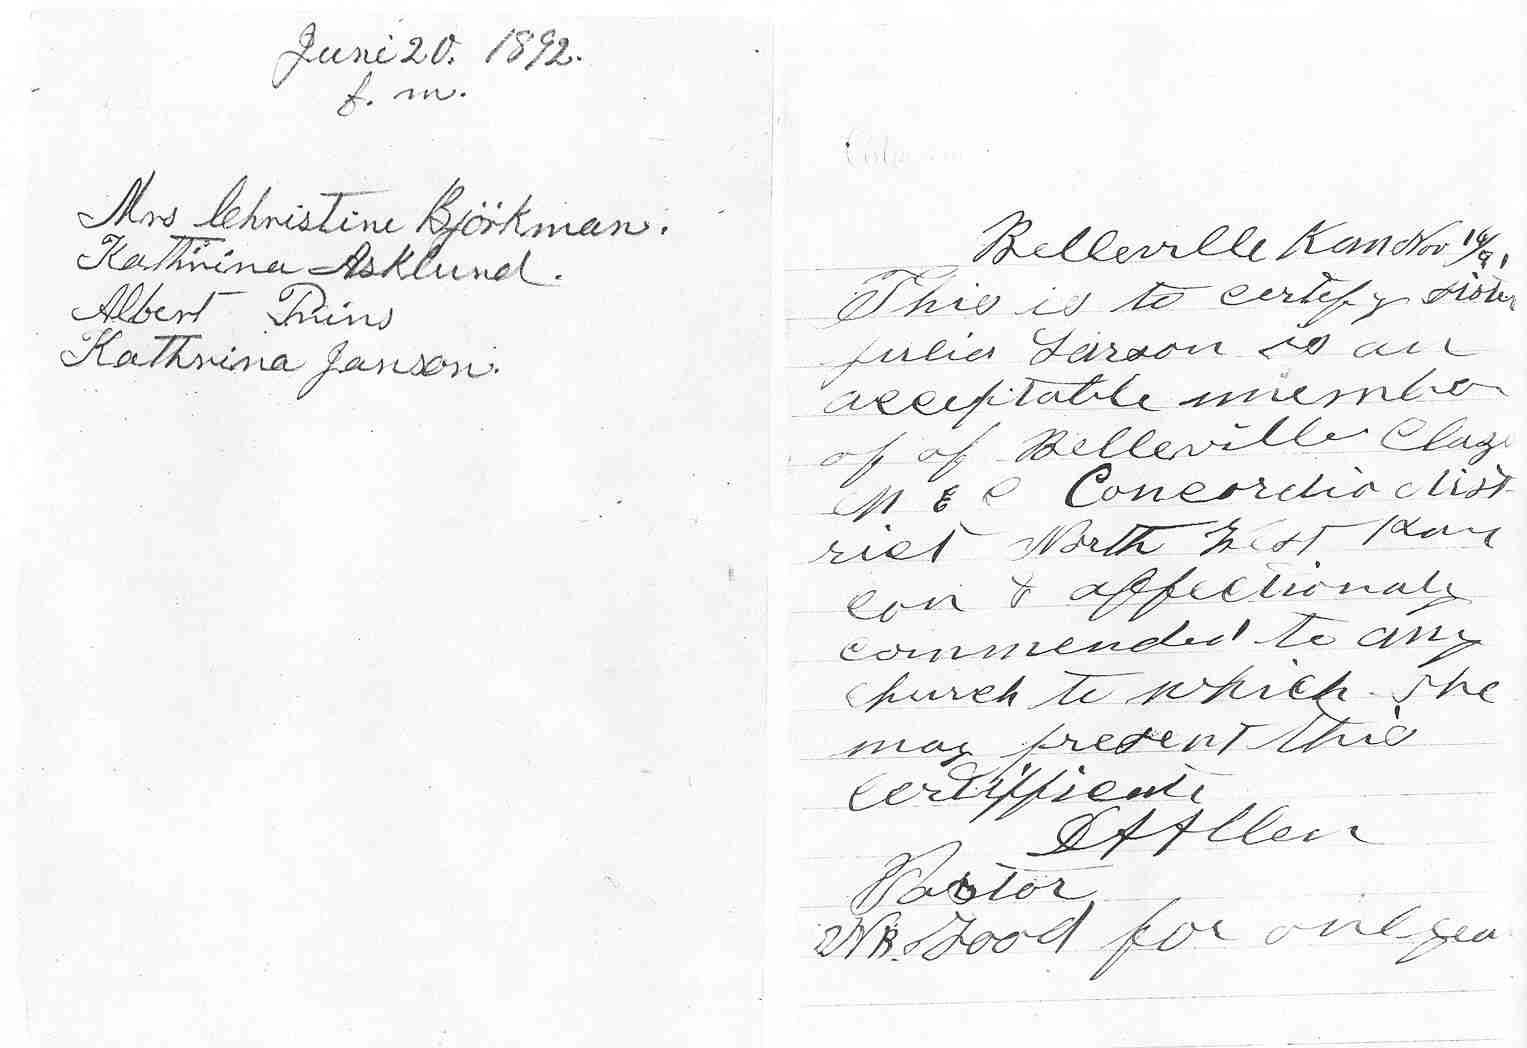 Juni 20. 1892.
f. m.
Mrs Christine Björkman.
Kathrina Asklund.
Albert Prins
Kathrina Janson.
Belleville Kan Nov
This is to certify sister
julia Larson is an
acceptable member
of of Belleville
M E C Concordia dist
rict North West Kan
con & affectionaly
commended to any
church to which she
may present this
certifficate
Allen
Pastor
NB. Good for one yea